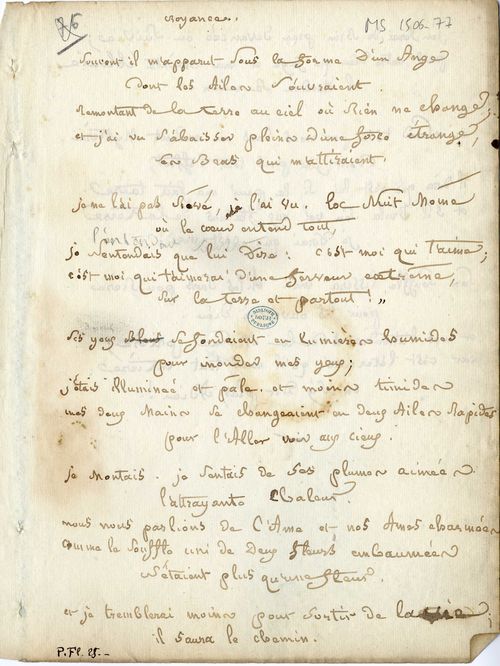 86
MS 1506-77
croyance.
Souvent il m'apparut sous la forme d'un Ange
dont les Ailes s'ouvraient
remontant de la terre au ciel où Rien ne change ;
et j'ai vu s'abaisser pleins d'une force étrange,
les Bras qui m'attiraient.
je ne l'ai pas rêvé, je l'ai vu. la Nuit Même
où le cœur entend tout,
je l'entendais
je n'entendais que lui Dire : c'est moi qui t'aime ;
c'est moi qui t'aimerai d'une ferveur extrême,
sur la terre et partout ! "
Ses yeux se fondaient en lumières humides
pour inonder mes yeux ;
j'étais illuminée et pâle. et moins timides
mes deux Mains se changeaient en deux Ailes Rapides
pour l'Aller voir aux cieux.
je Montais. je sentais de ses plumes aimées
l'attrayante chaleur.
nous nous parlions de l'Ame et nos Ames charmées
comme le souffle uni de Deux fleurs embaumées
n'étaient plus qu'une fleur.
et je tremblerai moins pour sortir de la vie
il saura le chemin.
P. Fl. 25.-